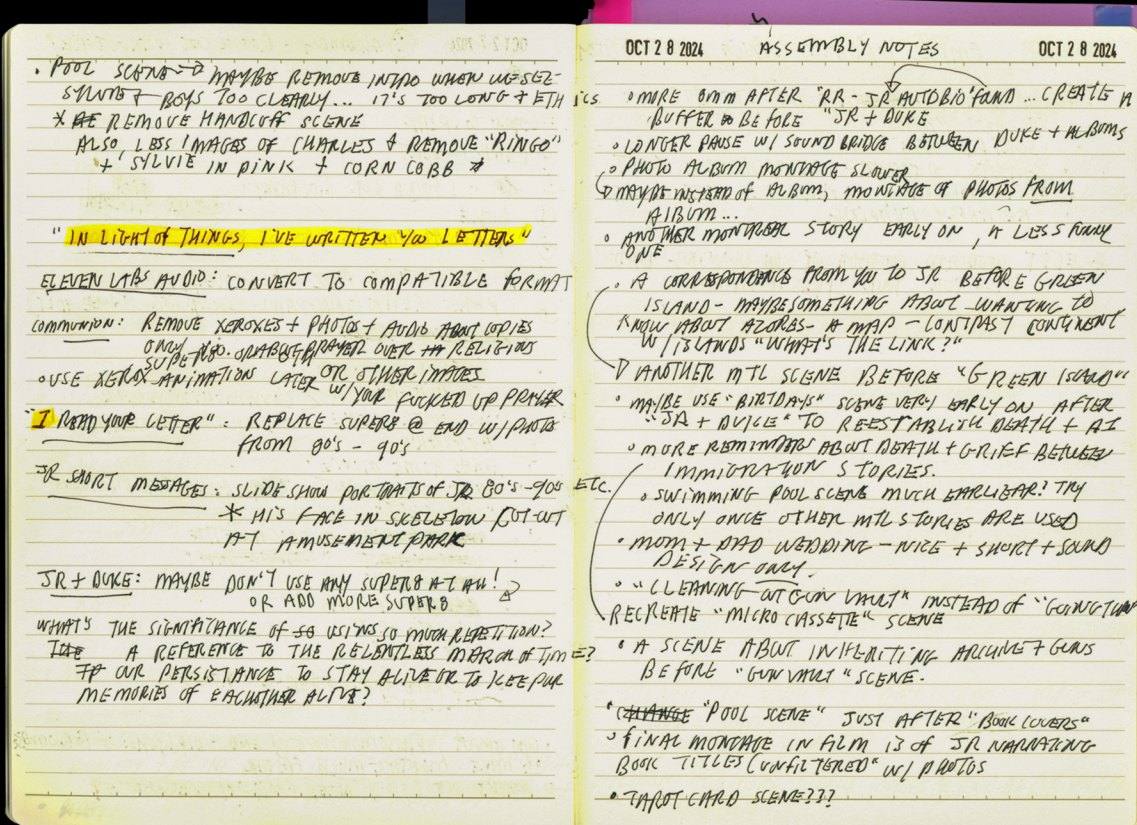 • POOL SCENE → MAYBE REMOVE INTRO WHEN WE SEE
SYLVIE + BOYS TOO CLEARLY... IT'S TOO LONG + ETHICS
* REMOVE HANDCUFF SCENE
ALSO LESS IMAGES OF CHARLES + REMOVE "RINGO"
+ SYLVIE IN PINK + CORN COBB *
"IN LIGHT OF THINGS, I'VE WRITTEN YOU LETTERS"
ELEVEN LABS AUDIO: CONVERT TO COMPATIBLE FORMAT
COMMUNION: REMOVE XEROXES + PHOTOS + AUDIO ABOUT COPIES
ONLY PRAYER OVER RELIGIOUS
SUPER 8
OR OTHER IMAGES
• USE XEROX ANIMATION LATER W/ YOUR FUCKED UP PRAYER
"I READ YOUR LETTER": REPLACE SUPER8 @ END W/ PHOTO
FROM 80'S - 90'S
JR SHORT MESSAGES: SLIDESHOW PORTRAITS OF JR 80'S - 90'S ETC.
* HIS FACE IN SKELETON CUT-OUT
AT AMUSEMENT PARK
JR + DUKE: MAYBE DON'T USE ANY SUPER8 AT ALL!
OR ADD MORE SUPER8
WHAT'S THE SIGNIFICANCE OF USING SO MUCH REPETITION?
A REFERENCE TO THE RELENTLESS MARCH OF TIME?
OUR PERSISTANCE TO STAY ALIVE OR TO KEEP OUR
MEMORIES OF EACHOTHER ALIVE?
OCT 28 2024 ASSEMBLY NOTES OCT 28 2024
• MORE 8mm AFTER "RR - JR AUTOBIO" FOUND... CREATE A
BUFFER BEFORE "JR + DUKE
• LONGER PAUSE W/ SOUND BRIDGE BETWEEN DUKE + ALBUMS
• PHOTO ALBUM MONTAGE SLOWER
MAYBE INSTEAD OF ALBUM, MONTAGE OF PHOTOS FROM
ALBUM...
• ANOTHER MONTREAL STORY EARLY ON, A LESS FUNNY
ONE
• A CORRESPONDENCE FROM YOU TO JR BEFORE GREEN
ISLAND - MAYBE SOMETHING ABOUT WANTING TO
KNOW ABOUT AZORES - A MAP - CONTRAST CONTINENT
W/ ISLANDS "WHAT'S THE LINK?"
ANOTHER MTL SCENE BEFORE "GREEN ISLAND"
• MAYBE USE "BIRTDAYS" SCENE VERY EARLY ON AFTER
"JR + DUKE" TO REESTABLISH DEATH + AI
• MORE REMINDERS ABOUT DEATH + GRIEF BETWEEN
IMMIGRATION STORIES.
• SWIMMING POOL SCENE MUCH EARLIEAR? TRY
ONLY ONCE OTHER MTL STORIES ARE USED
• MOM + DAD WEDDING - NICE + SHORT + SOUND
DESIGN ONLY.
• "CLEANING OUT GUN VAULT" INSTEAD OF "GOING
RECREATE "MICRO CASSETTE" SCENE
• A SCENE ABOUT INHERITING ARCHIVE + GUNS
BEFORE "GUN VAULT" SCENE.
• CHANGE "POOL SCENE" JUST AFTER "BOOK COVERS"
• FINAL MONTAGE IN FILM IS OF JR NARRATING
BOOK TITLES (UNFILTERED" W/ PHOTOS
• TAROT CARD SCENE???